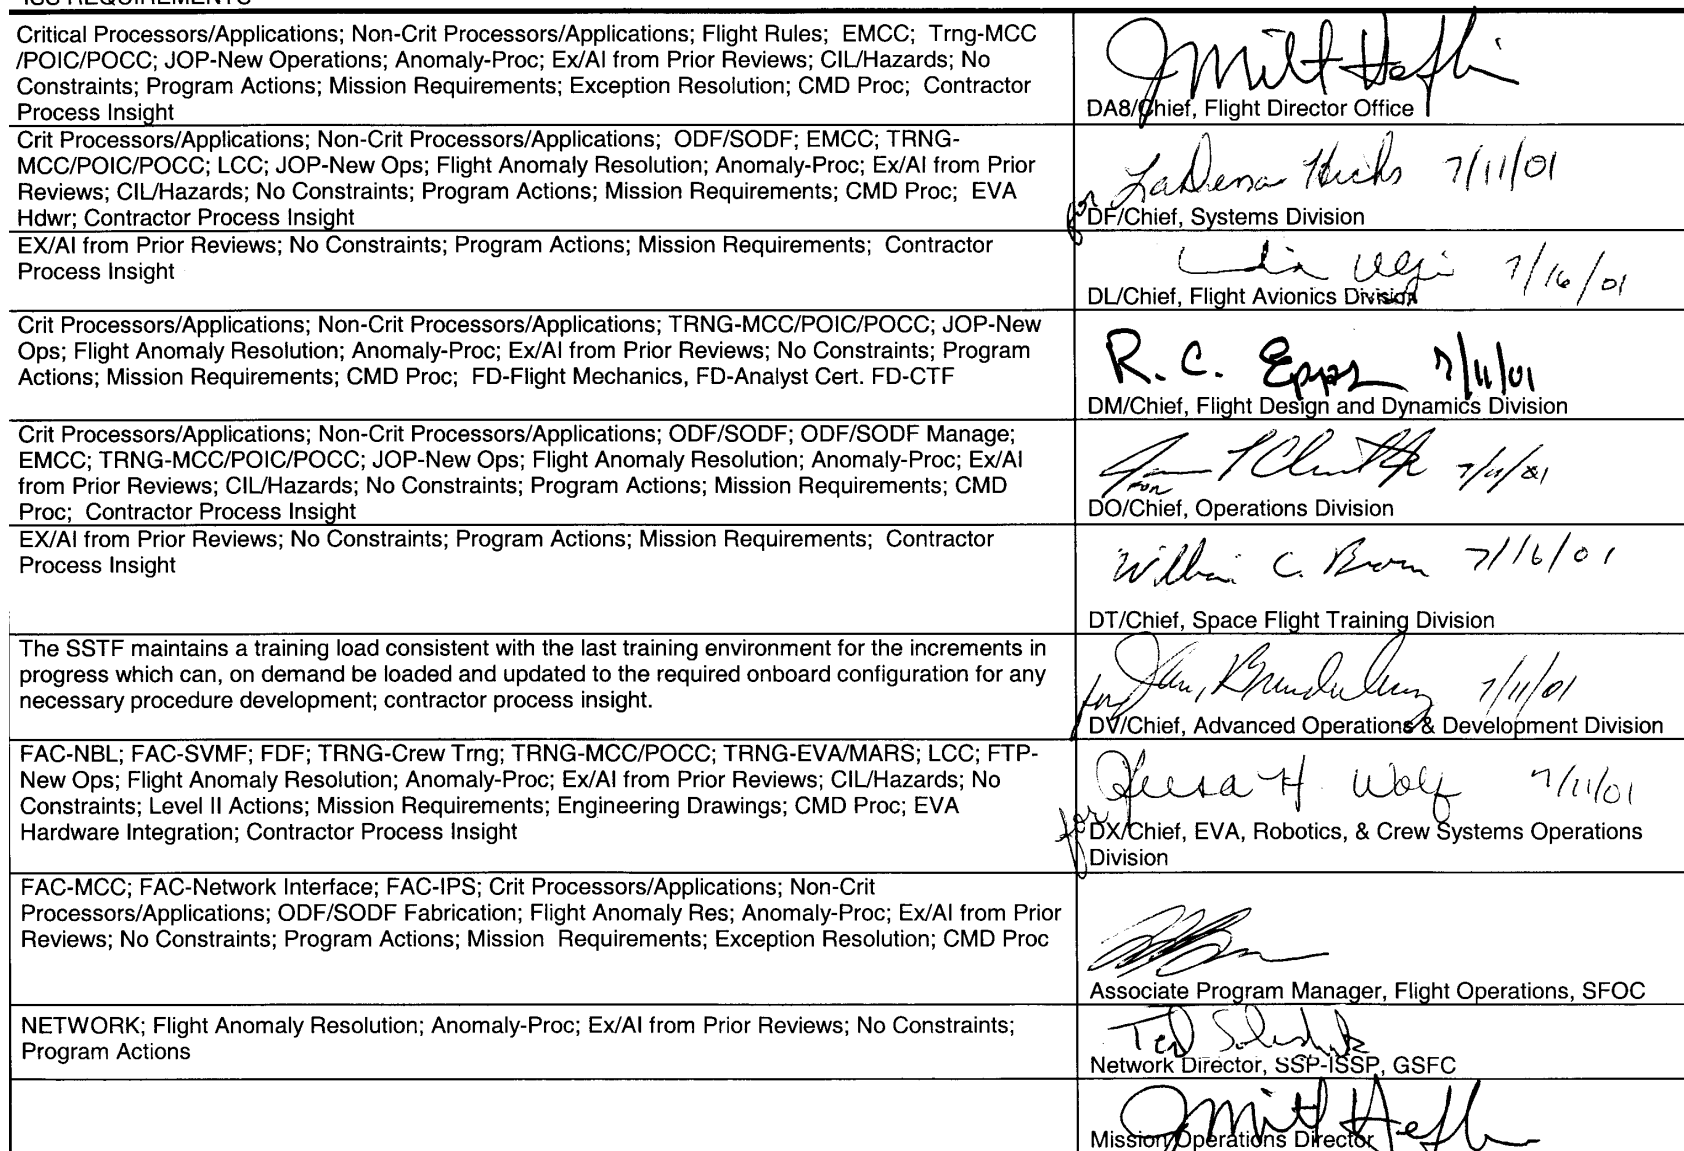 ISS REQUIREMENTS
Critical Processors/Applications; Non-Crit Processors/Applications; Flight Rules; EMCC; Trng-MCC
/POIC/POCC; JOP-New Operations; Anomaly-Proc; Ex/AI from Prior Reviews; CIL/Hazards; No
Constraints; Program Actions; Mission Requirements; Exception Resolution; CMD Proc; Contractor
Process Insight
J Milt Heflin
DA8/Chief, Flight Director Office
Crit Processors/Applications; Non-Crit Processors/Applications; ODF/SODF; EMCC; TRNG-
MCC/POIC/POCC; LCC; JOP-New Ops; Flight Anomaly Resolution; Anomaly-Proc; Ex/AI from Prior
Reviews; CIL/Hazards; No Constraints; Program Actions; Mission Requirements; CMD Proc; EVA
Hdwr; Contractor Process Insight
for LaDena Hicks 7/11/01
DF/Chief, Systems Division
EX/AI from Prior Reviews; No Constraints; Program Actions; Mission Requirements; Contractor
Process Insight
7/16/01
DL/Chief, Flight Avionics Division
Crit Processors/Applications; Non-Crit Processors/Applications; TRNG-MCC/POIC/POCC; JOP-New
Ops; Flight Anomaly Resolution; Anomaly-Proc; Ex/AI from Prior Reviews; No Constraints; Program
Actions; Mission Requirements; CMD Proc; FD-Flight Mechanics, FD-Analyst Cert. FD-CTF
R. C. Epps 7/11/01
DM/Chief, Flight Design and Dynamics Division
Crit Processors/Applications; Non-Crit Processors/Applications; ODF/SODF; ODF/SODF Manage;
EMCC; TRNG-MCC/POIC/POCC; JOP-New Ops; Flight Anomaly Resolution; Anomaly-Proc; Ex/AI
from Prior Reviews; CIL/Hazards; No Constraints; Program Actions; Mission Requirements; CMD
Proc; Contractor Process Insight
for
DO/Chief, Operations Division
EX/AI from Prior Reviews; No Constraints; Program Actions; Mission Requirements; Contractor
Process Insight
William C. Brown 7/16/01
DT/Chief, Space Flight Training Division
The SSTF maintains a training load consistent with the last training environment for the increments in
progress which can, on demand be loaded and updated to the required onboard configuration for any
necessary procedure development; contractor process insight.
for 7/11/01
DV/Chief, Advanced Operations & Development Division
FAC-NBL; FAC-SVMF; FDF; TRNG-Crew Trng; TRNG-MCC/POCC; TRNG-EVA/MARS; LCC; FTP-
New Ops; Flight Anomaly Resolution; Anomaly-Proc; Ex/AI from Prior Reviews; CIL/Hazards; No
Constraints; Level II Actions; Mission Requirements; Engineering Drawings; CMD Proc; EVA
Hardware Integration; Contractor Process Insight
for H. Wolf 7/11/01
DX/Chief, EVA, Robotics, & Crew Systems Operations
Division
FAC-MCC; FAC-Network Interface; FAC-IPS; Crit Processors/Applications; Non-Crit
Processors/Applications; ODF/SODF Fabrication; Flight Anomaly Res; Anomaly-Proc; Ex/AI from Prior
Reviews; No Constraints; Program Actions; Mission Requirements; Exception Resolution; CMD Proc
Associate Program Manager, Flight Operations, SFOC
NETWORK; Flight Anomaly Resolution; Anomaly-Proc; Ex/AI from Prior Reviews; No Constraints;
Program Actions
Ted
Network Director, SSP-ISSP, GSFC
J Milt Heflin
Mission Operations Director